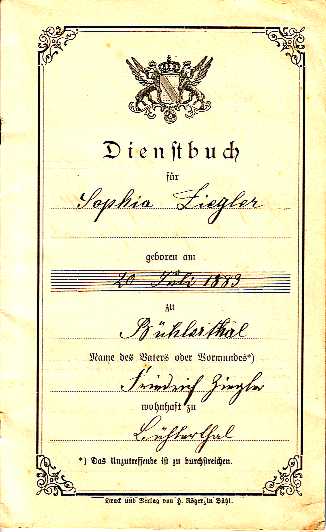 Dienstbuch
für
Sophia Ziegler
geboren am
20 Juli 1883
zu
Bühlerthal
Name des Vaters oder Vormundes*)
Friedrich Ziegler
wohnhaft zu
Bühlerthal
*) Das Unzutreffende ist zu durchstreichen.
Druck und Verlag von H. Röger, in Bühl.